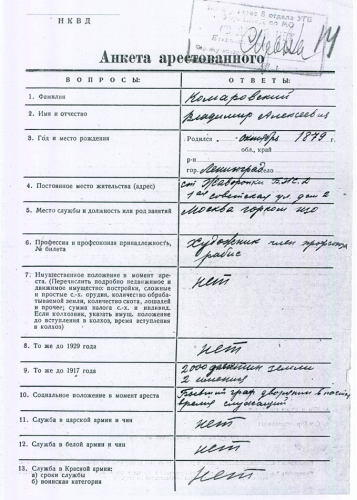 НКВД
Анкета арестованного
ВОПРОСЫ: ОТВЕТЫ:
1. Фамилия Комаровский
2. Имя и отчество Владимир Алексеевич
3. Год и место рождения Родился октябрь 1879 г.
обл., край
р-н
гор. Ленинград село
4. Постоянное место жительства (адрес) ст Жаворонки
1ая советская ул дом 2
5. Место службы и должность или род занятий Москва горком изо
6. Профессия и профсоюзная принадлежность, Художник член профсоюза
№ билета рабис
7. Имущественное положение в момент аре-
ста. (Перечислить подробно недвижимое и
движимое имущество: постройки, сложные
и простые с.-х. орудия, количество обрабаты-
ваемой земли, количество скота, лошадей
и прочее; сумма налога с.-х. и индивид.
Если колхозник, указать имущ. положение
до вступления в колхоз, время вступления
в колхоз) нет
8. То же до 1929 года нет
9. То же до 1917 года 2000 десятин земли
2 имения
10. Социальное положение в момент ареста Бывший граф дворянин в
время служащий
11. Служба в царской армии и чин нет
12. Служба в белой армии и чин нет
13. Служба в Красной армии: нет
а) сроки службы
б) воинская категория